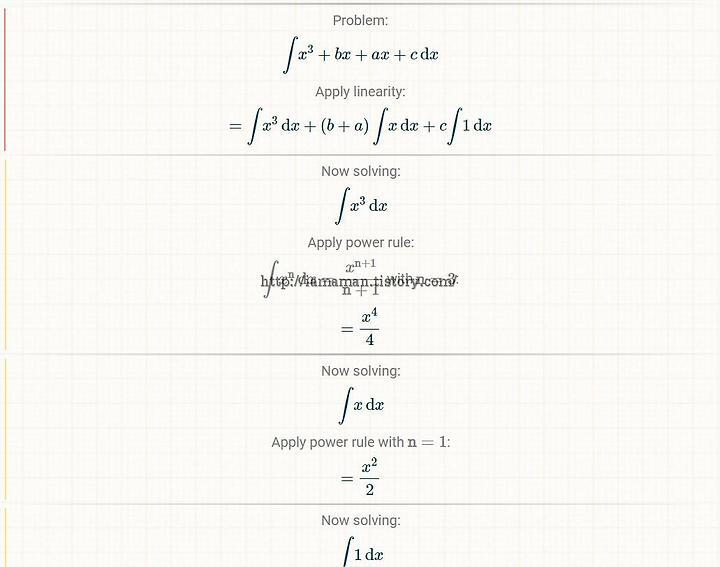 Problem:
∫x³ + bx + ax + c dx
Apply linearity:
= ∫x³ dx + (b + a) ∫x dx + c ∫1 dx
Now solving:
∫x³ dx
Apply power rule:
∫xⁿ dx = xⁿ⁺¹/(n + 1) with n = 3:
http://iamaman.tistory.com/
= x⁴/4
Now solving:
∫x dx
Apply power rule with n = 1:
= x²/2
Now solving:
∫1 dx